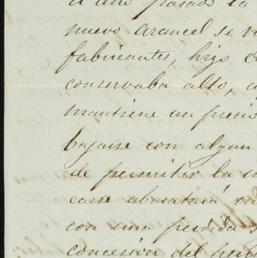 el año pasado la
nuevo arancel se v
fabricantes, hizo
conservaba alto, a
mantiene un precio
bajarse con algun
de permitir la
carse abratará
con una perdida
concesion del